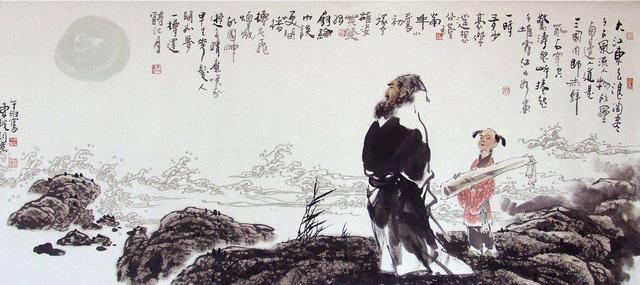 大江東去浪淘盡
千古風流人物故壘
西邊人道是
三國周郎赤壁
亂石穿空
驚濤裂岸捲起
千堆雪江山如畫
一時
多少
豪傑
遥想
公瑾
當
年小
喬
初
嫁了
雄姿
英發
羽
扇綸
巾談
笑間
檣櫓灰飛
煙滅
故國神
遊多情應笑我
早生華髮人
間如夢
一樽還
酹江月